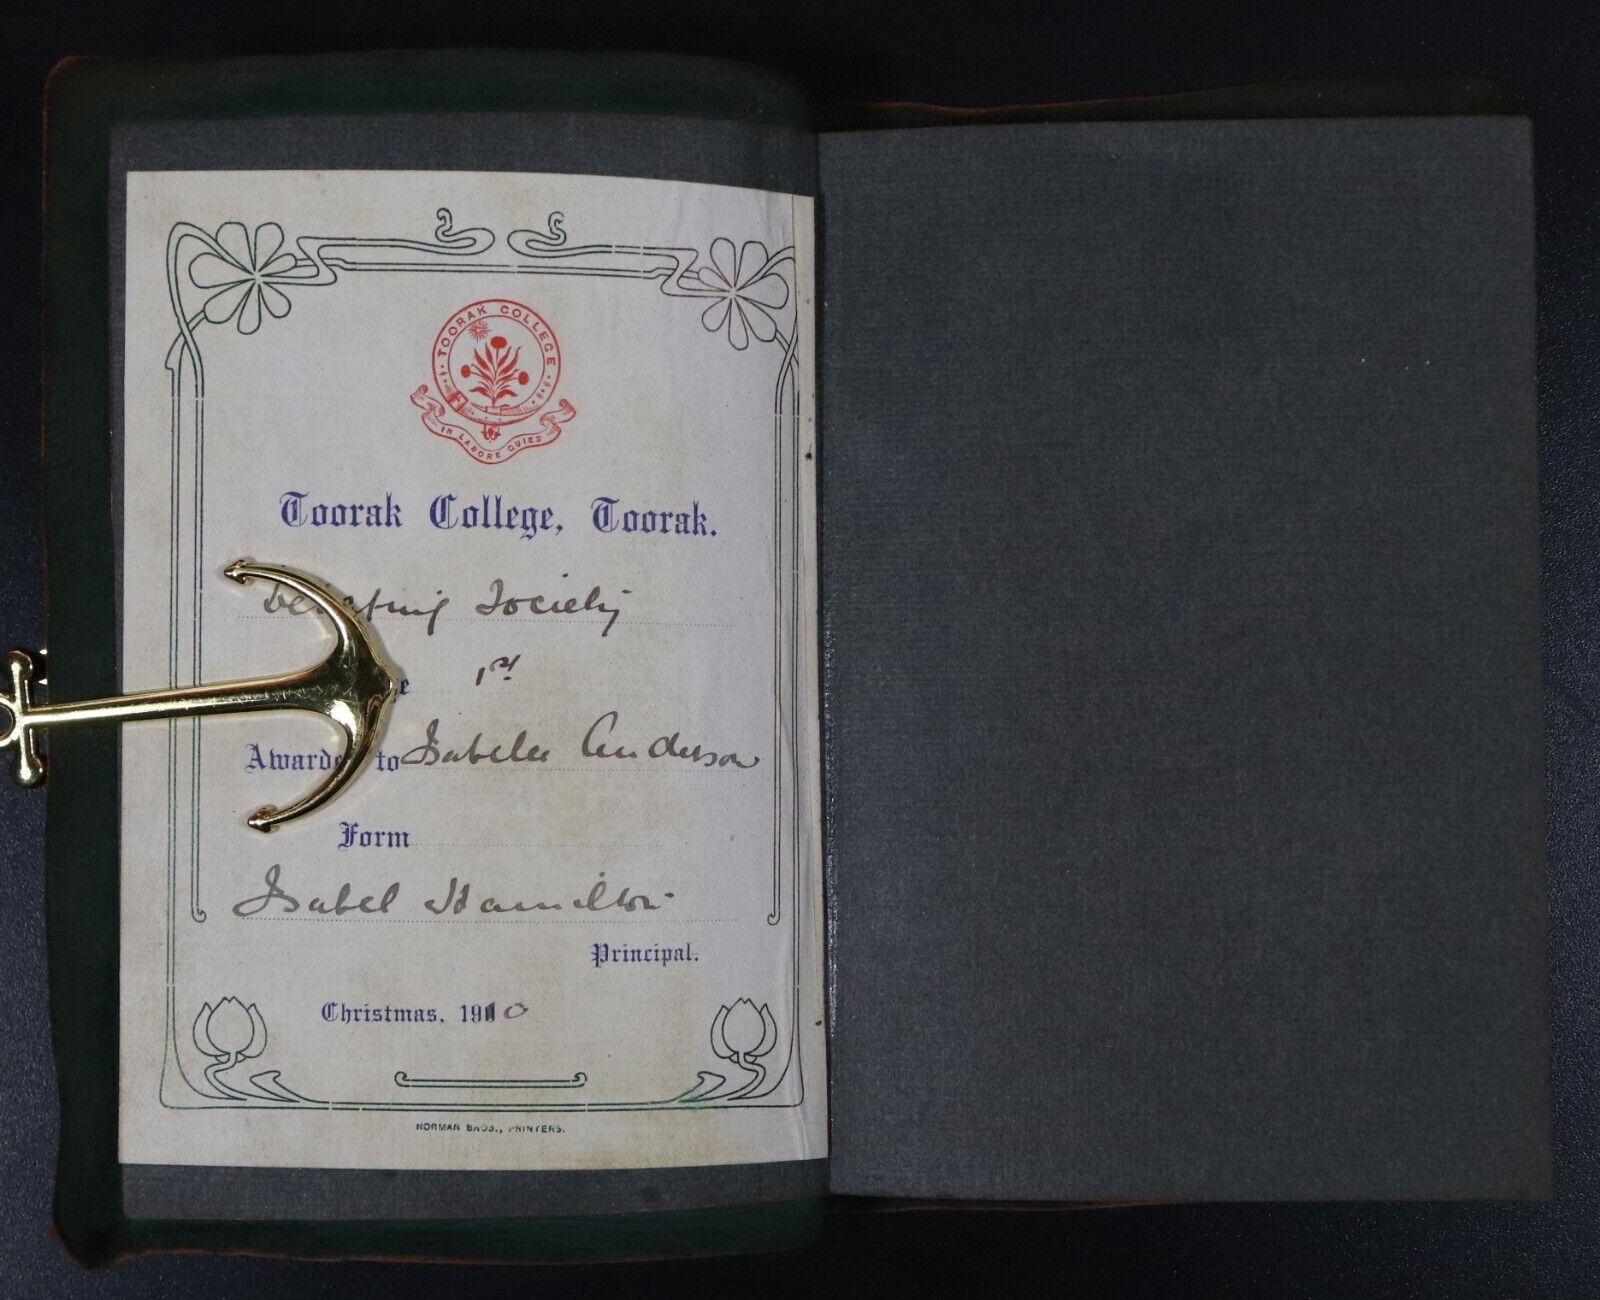 TOORAK COLLEGE
IN LABORE QUIES
Toorak College, Toorak.
Society
1st
to Isabella Anderson
Form
Isabel Hamilton
Principal.
Christmas, 1910
NORMAN BROS., PRINTERS.